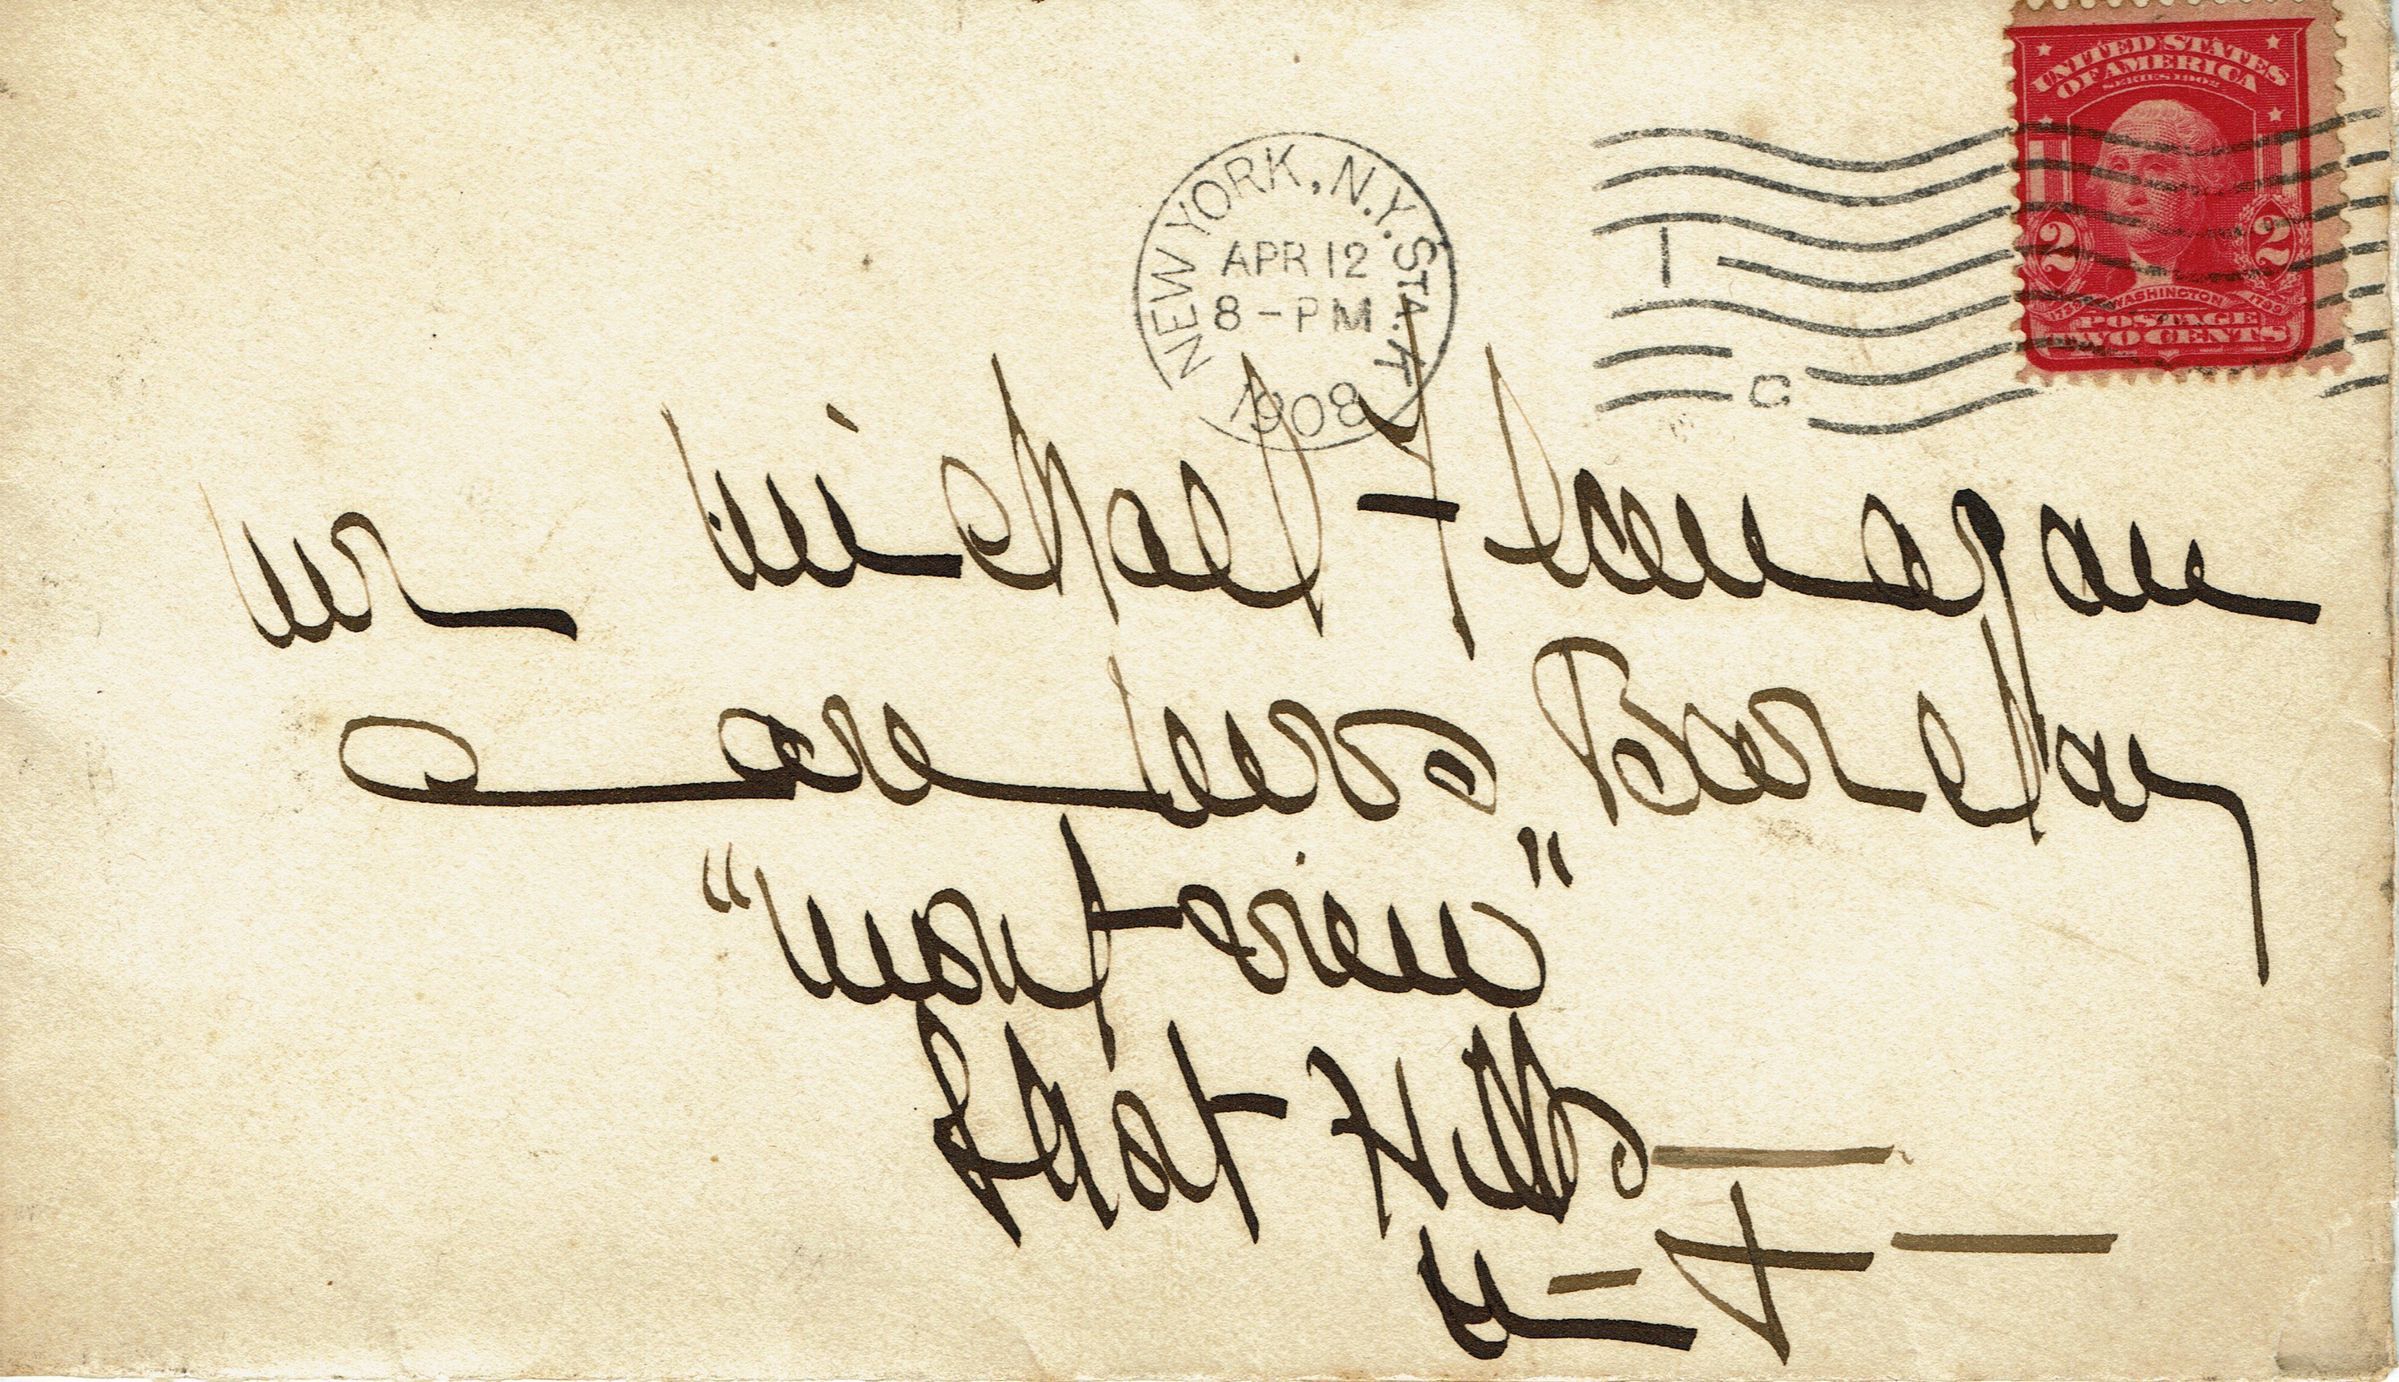 NEW YORK, N.Y. STA.
APR 12
8-PM
1908
1
C
UNITED STATES
OF AMERICA
SERIES 1902
2 2
1732 WASHINGTON 1799
POSTAGE
TWO CENTS
Mr Michael Flanagan
Care Mrs Barclay
"Montview"
Short Hills —
N-J-